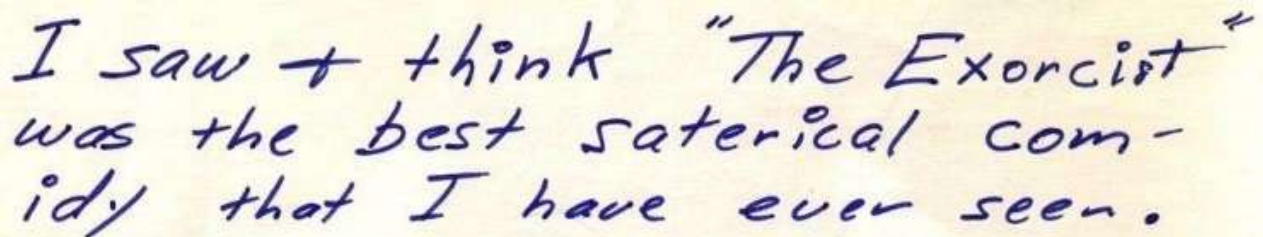 I saw + think "The Exorcist"
was the best saterical com-
idy that I have ever seen.